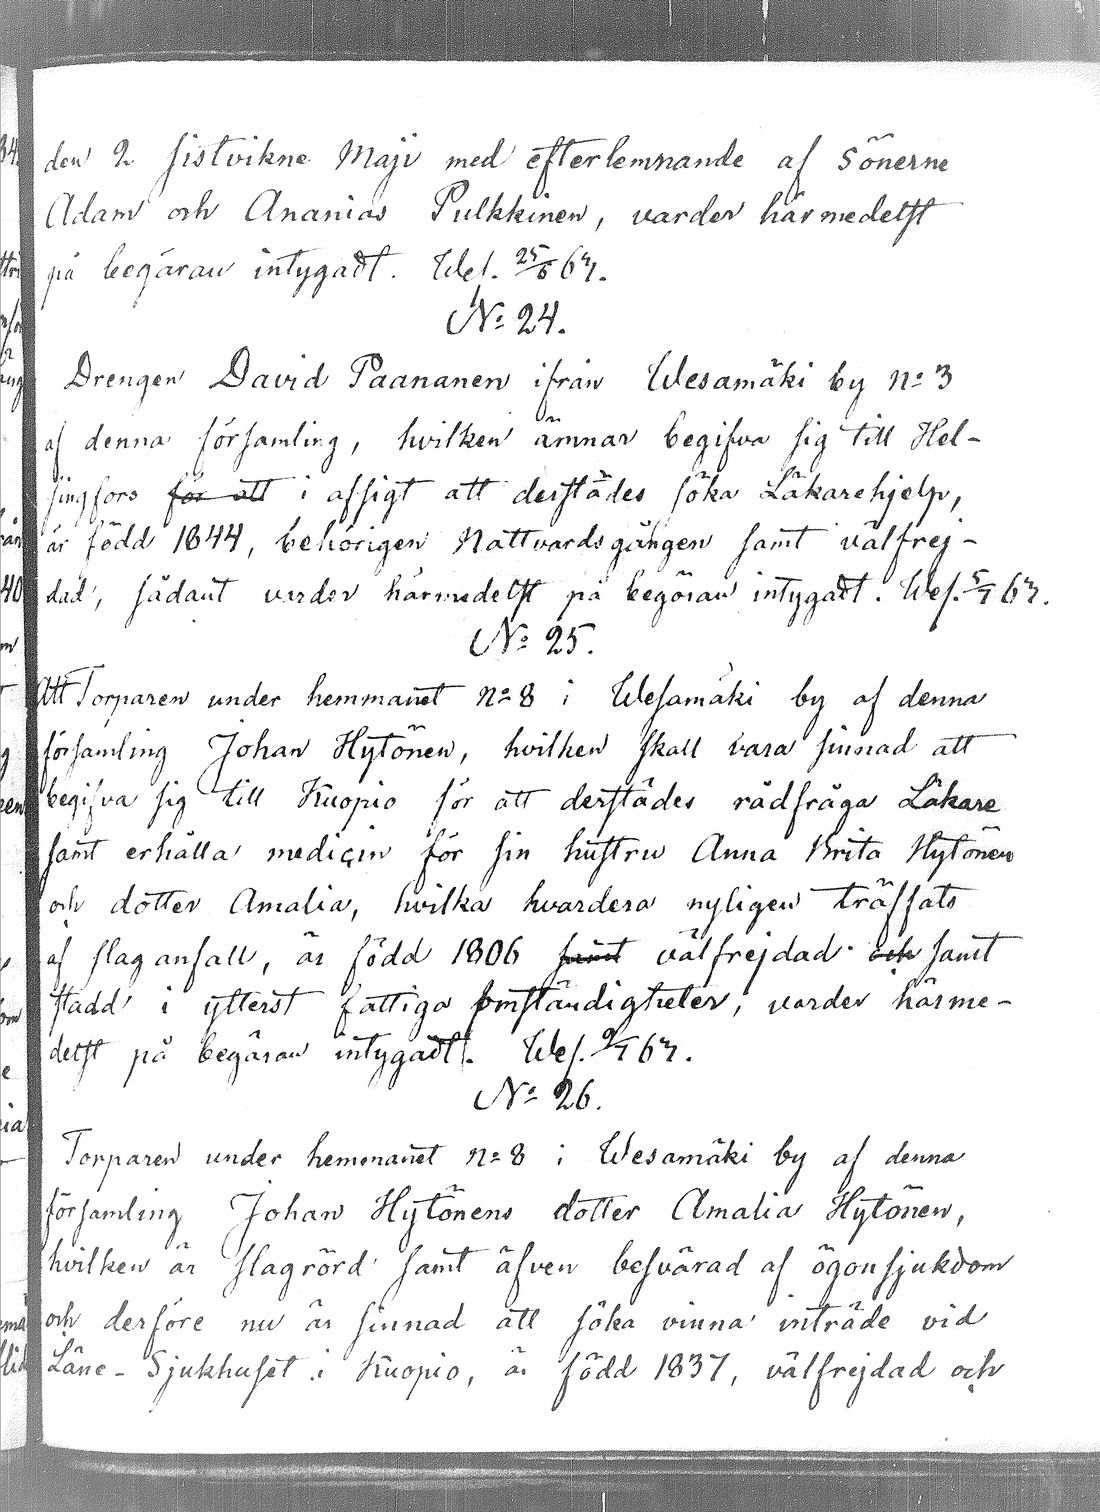 den 2 sistvikne Maji med efterlemnande af Sönerne
Adam och Ananias Pulkkinen, varder härmedelst
på begäran intygadt. Wes. 25/6 67.
No 24.
Drengen David Paananen ifrån Wesamäki by no 3
af denna församling, hvilken ämnar begifva sig till Hel-
singfors för att i afsigt att derstädes söka Läkarehjelp,
är född 1844, behörigen Nattvardsgången samt välfrej-
dad, sådant varder härmedelst på begäran intygadt. Wes. 5/7 67.
No 25.
Att Torparen under hemmanet no 8 i Wesamäki by af denna
församling Johan Hytönen, hvilken skall vara sinnad att
begifva sig till Kuopio för att derstädes rådfråga Läkare
samt erhålla medicin för sin hustru Anna Brita Hytönen
och dotter Amalia, hvilka hvardera nyligen träffats
af slaganfall, är född 1806 samt välfrejdad och samt
stadd i ytterst fattiga omständigheter, varder härme-
delst på begäran intygadt. Wes. 9/7 67.
No 26.
Torparen under hemmanet no 8 i Wesamäki by af denna
församling Johan Hytönens dotter Amalia Hytönen,
hvilken är slagrörd samt äfven besvärad af ögonsjukdom
och derföre nu är sinnad att söka vinna inträde vid
Läne-Sjukhuset i Kuopio, är född 1837, välfrejdad och